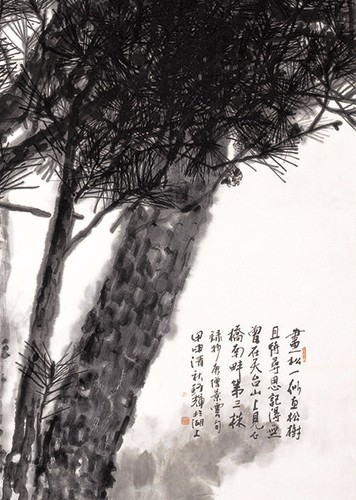 畫松一似真松樹
且待尋思記得無
曾在天台山上見石
橋南畔第三株
錄抄唐僧景雲句
甲申清秋輝於湖上